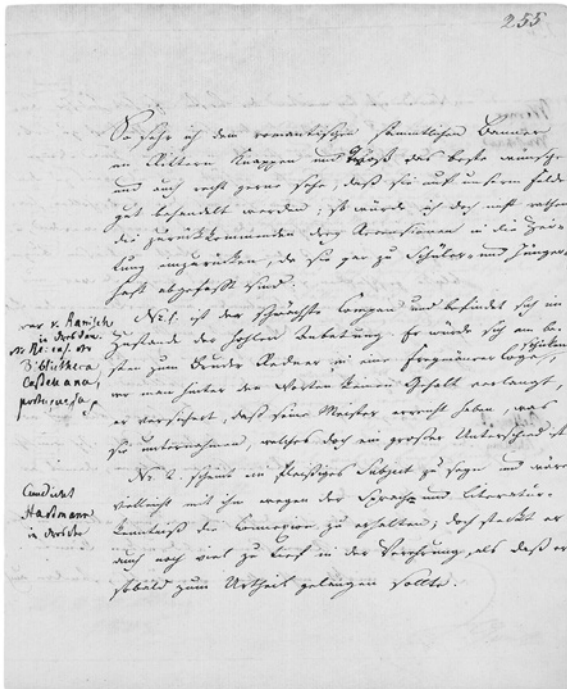 255
So sehr ich dem romantischen sämmtlichen Banner
an Rittern Knappen und Troß das beste wünsche
und auch recht gerne sehe, daß sie auf unserm Felde
gut behandelt werden; so würde ich doch nicht rathen
die zurückkommenden drey Recensionen in die Zei-
tung einzurücken, da sie gar zu Schüler- und Jünger-
haft abgefaßt sind.
No. 1. ist der schwächste Compan und befindet sich im
Zustande der hohlen Anbetung. Er würde sich am be-
sten zum Bruder Redner in eine Freymaurerloge schicken,
wo man hinter den Worten keinen Gehalt verlangt,
er versichert, daß seine Meister erreicht haben, was
sie unternehmen, welches doch ein großer Unterschied ist
No. 2. scheint ein fleißiges Subject zu seyn und wäre
vielleicht mit ihm wegen der Sprach- und Literatur-
kenntniß die Connexion zu erhalten; doch steckt er
auch noch viel zu tief in der Verehrung, als daß er
sobald zum Urtheil gelangen sollte.
war v.
in Dresden.
Bibliotheca
Castellana,
Candidat
in Dresden